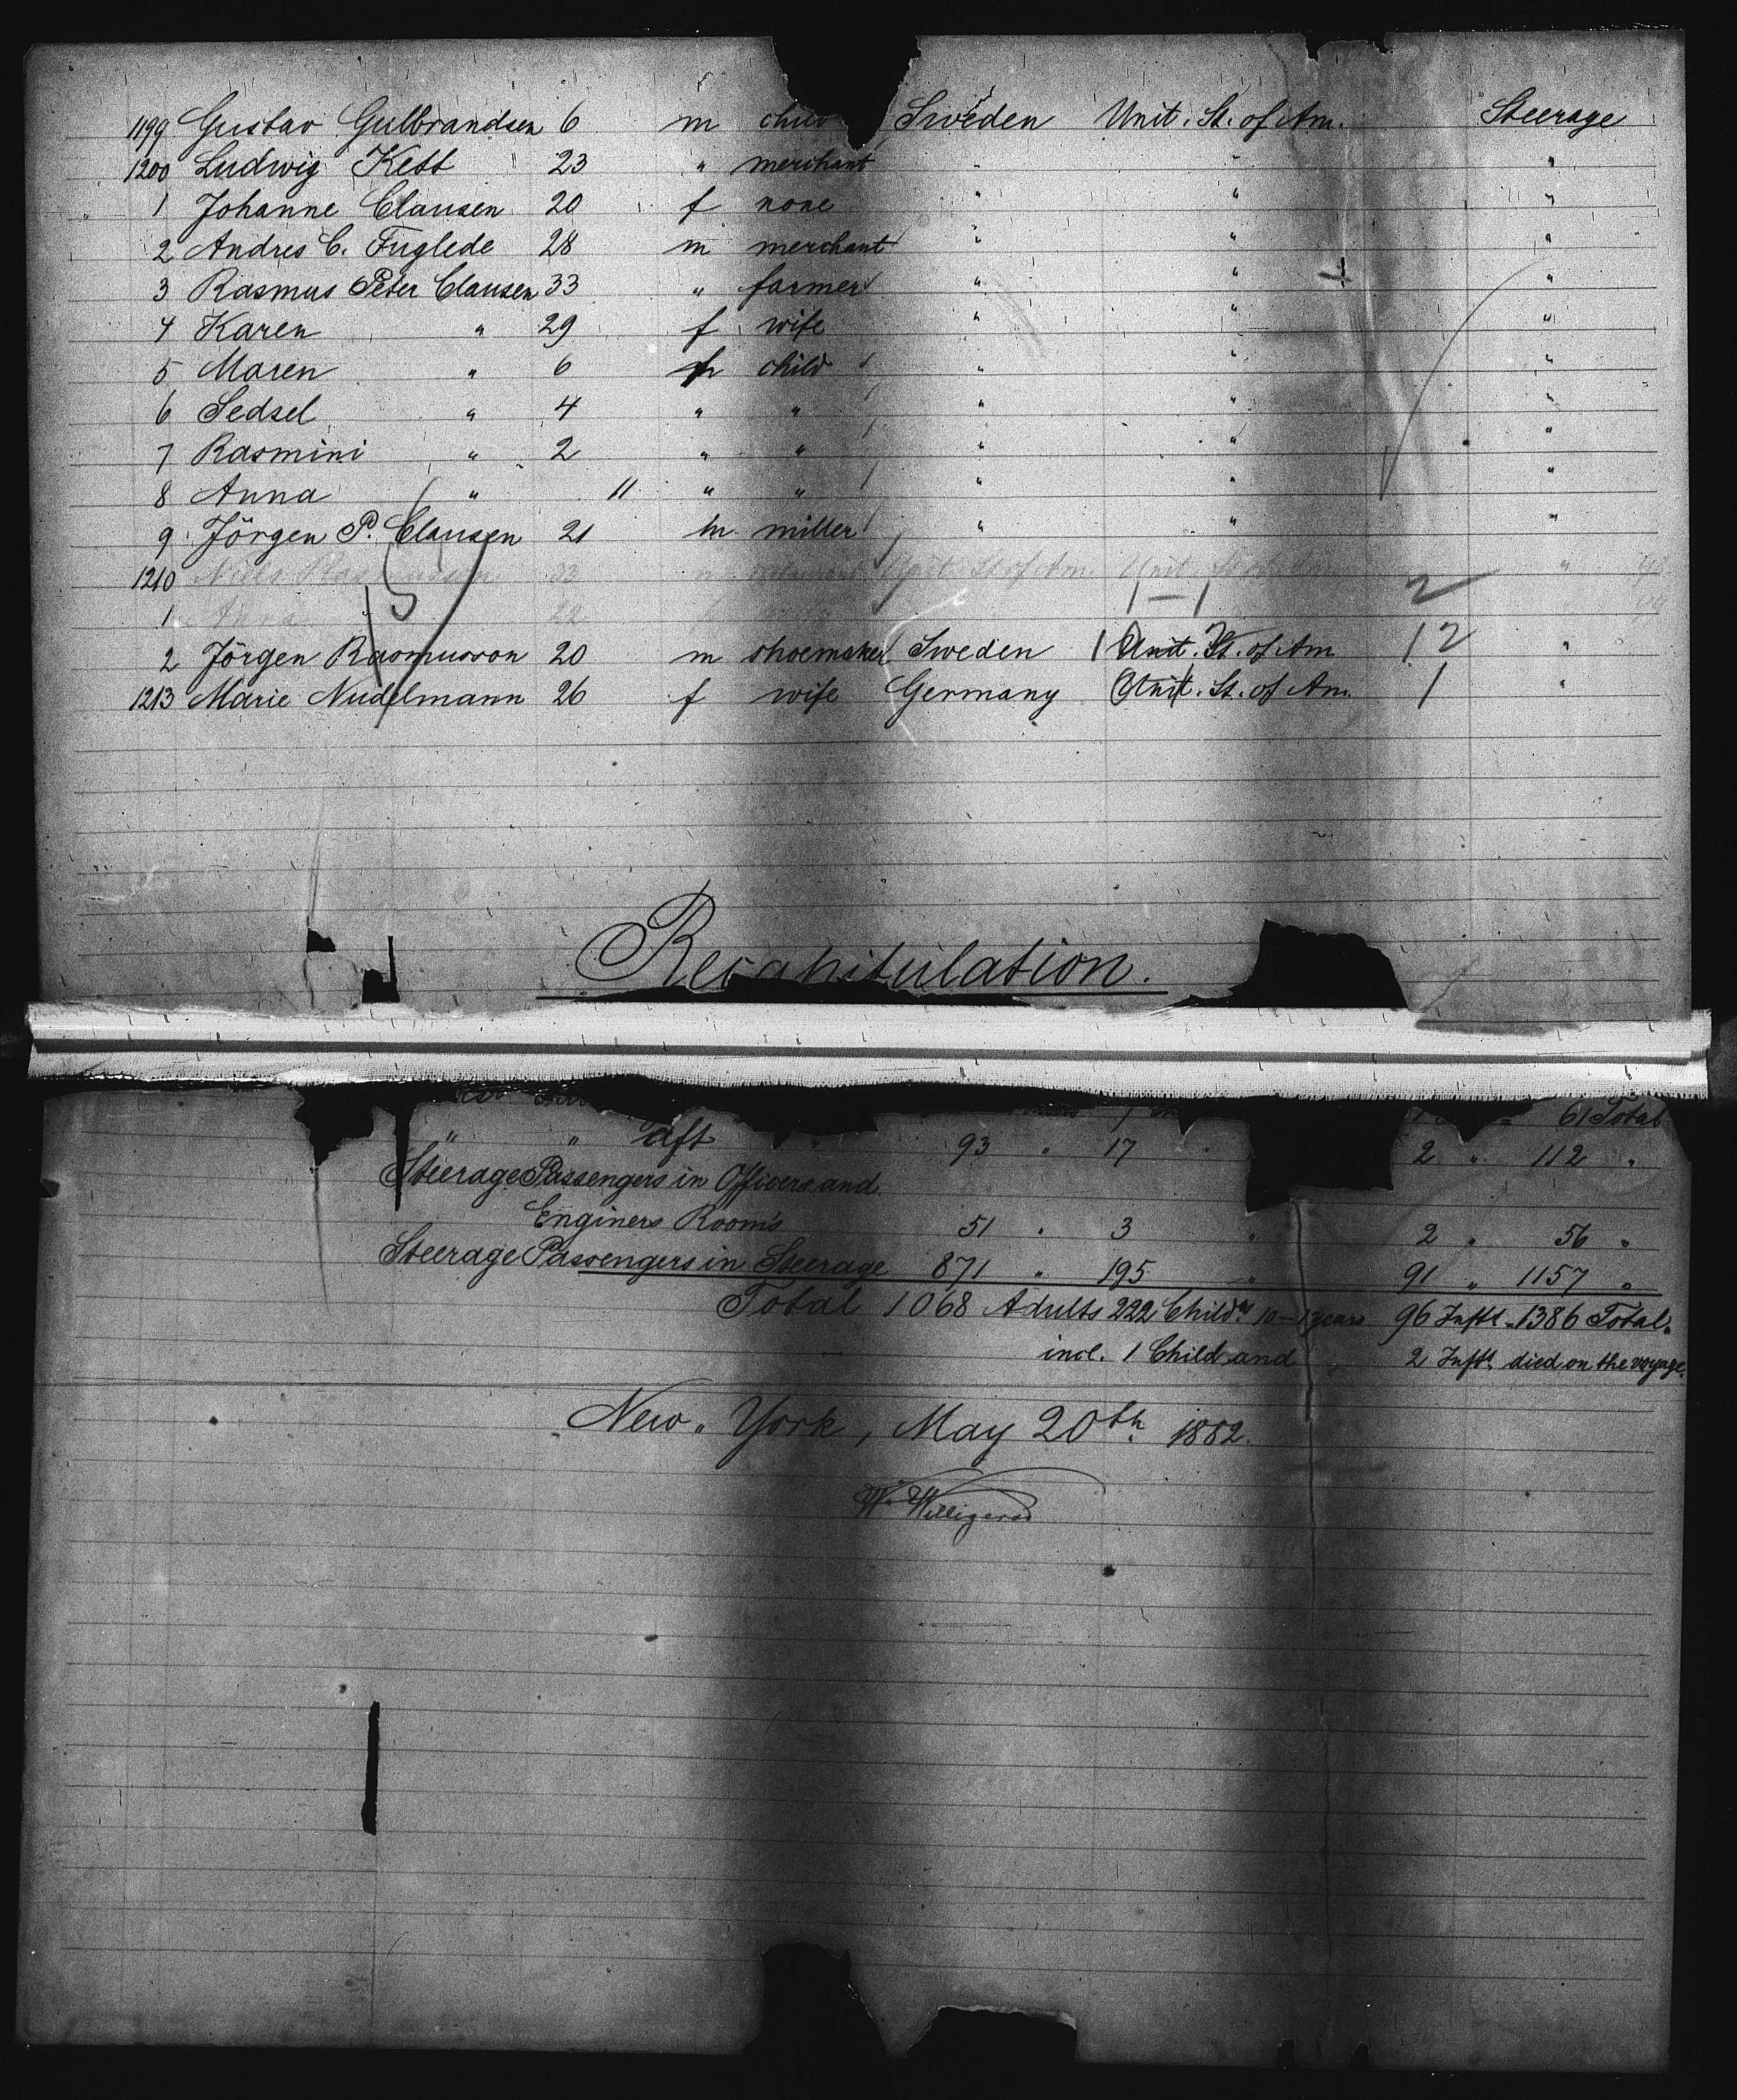 1199 Gustav Gulbrandsen 6 m child Sweden Unit. St. of Am. Steerage
1200 Ludwig Kett 23 " merchant " " "
1 Johanne Clausen 20 f none " " "
2 Andres C. Fuglede 28 m merchant " " "
3 Rasmus Peter Clausen 33 " farmer " " "
4 Karen " 29 f wife " " "
5 Maren " 6 child " " "
6 Sedsel " 4 " " " " "
7 Rasmini " 2 " " " " "
8 Anna " 11 " " " " "
9 Jörgen P. Clausen 21 m miller " " "
1210 Niels 33 Unit. St. of Am. Unit. St. of Am. "
1 Anna
2 Jörgen Rasmusson 20 m shoemaker Sweden 1 Unit. St. of Am 12 "
1213 Marie Nudelmann 26 f wife Germany Unit. St. of Am. 1 "
Recapitulation.
61 Total
" " aft " 93 " 17 " 2 " 112 "
Steerage Passengers in Officers and
Enginers Rooms 51 " 3 " 2 " 56 "
Steerage Passengers in Steerage 871 " 195 " 91 " 1157 "
Total 1068 Adults 222 Childrs 10-1 years 96 Infts. 1386 Total.
incl. 1 Child and 2 Infts. died on the voyage.
New-York, May 20th. 1882.
W. Willigerod